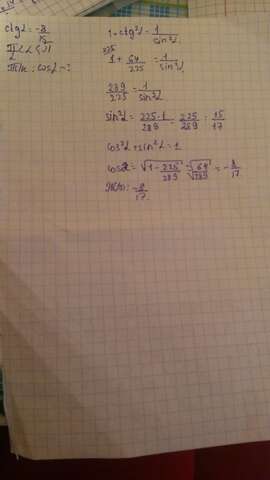 ctgα = -8/15
π/2 < α < π
cosα - ?
1 + ctg²α = 1/sin²α
225
1 + 64/225 = 1/sin²α
289/225 = 1/sin²α
sin²α = 225·1/289 = 225/289 = 15/17
cos²α + sin²α = 1
cosα = √1 - 225/289 = √64/√289 = -8/17
-8/17